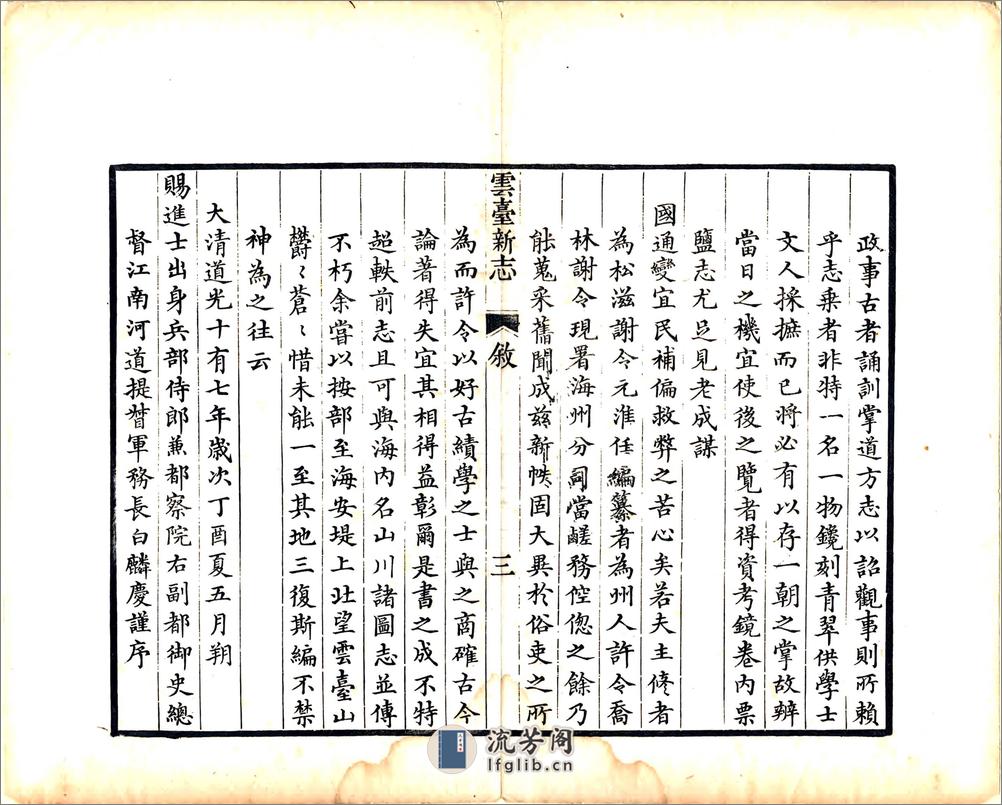 政事古者誦訓掌道方志以詔觀事則所賴
乎志乘者非特一名一物鏤刻青翠供學士
文人採摭而已將必有以存一朝之掌故辨
當日之機宜使後之覽者得資考鏡卷內票
鹽志尤足見老成謀
國通變宜民補偏救弊之苦心矣若夫主修者
為松滋謝令元淮任編纂者為州人許令喬
林謝令現署海州分司當鹺務倥偬之餘乃
能蒐采舊聞成茲新帙固大異於俗吏之所
雲臺新志
敘
三
為而許令以好古績學之士與之商確古今
論著得失宜其相得益彰爾是書之成不特
超軼前志且可與海內名山川諸圖志並傳
不朽余嘗以按部至海安堤上北望雲臺山
欝〻蒼〻惜未能一至其地三復斯編不禁
神為之往云
大清道光十有七年歲次丁酉夏五月朔
賜進士出身兵部侍郎兼都察院右副都御史總
督江南河道提督軍務長白麟慶謹序
流芳阁
lfglib.cn